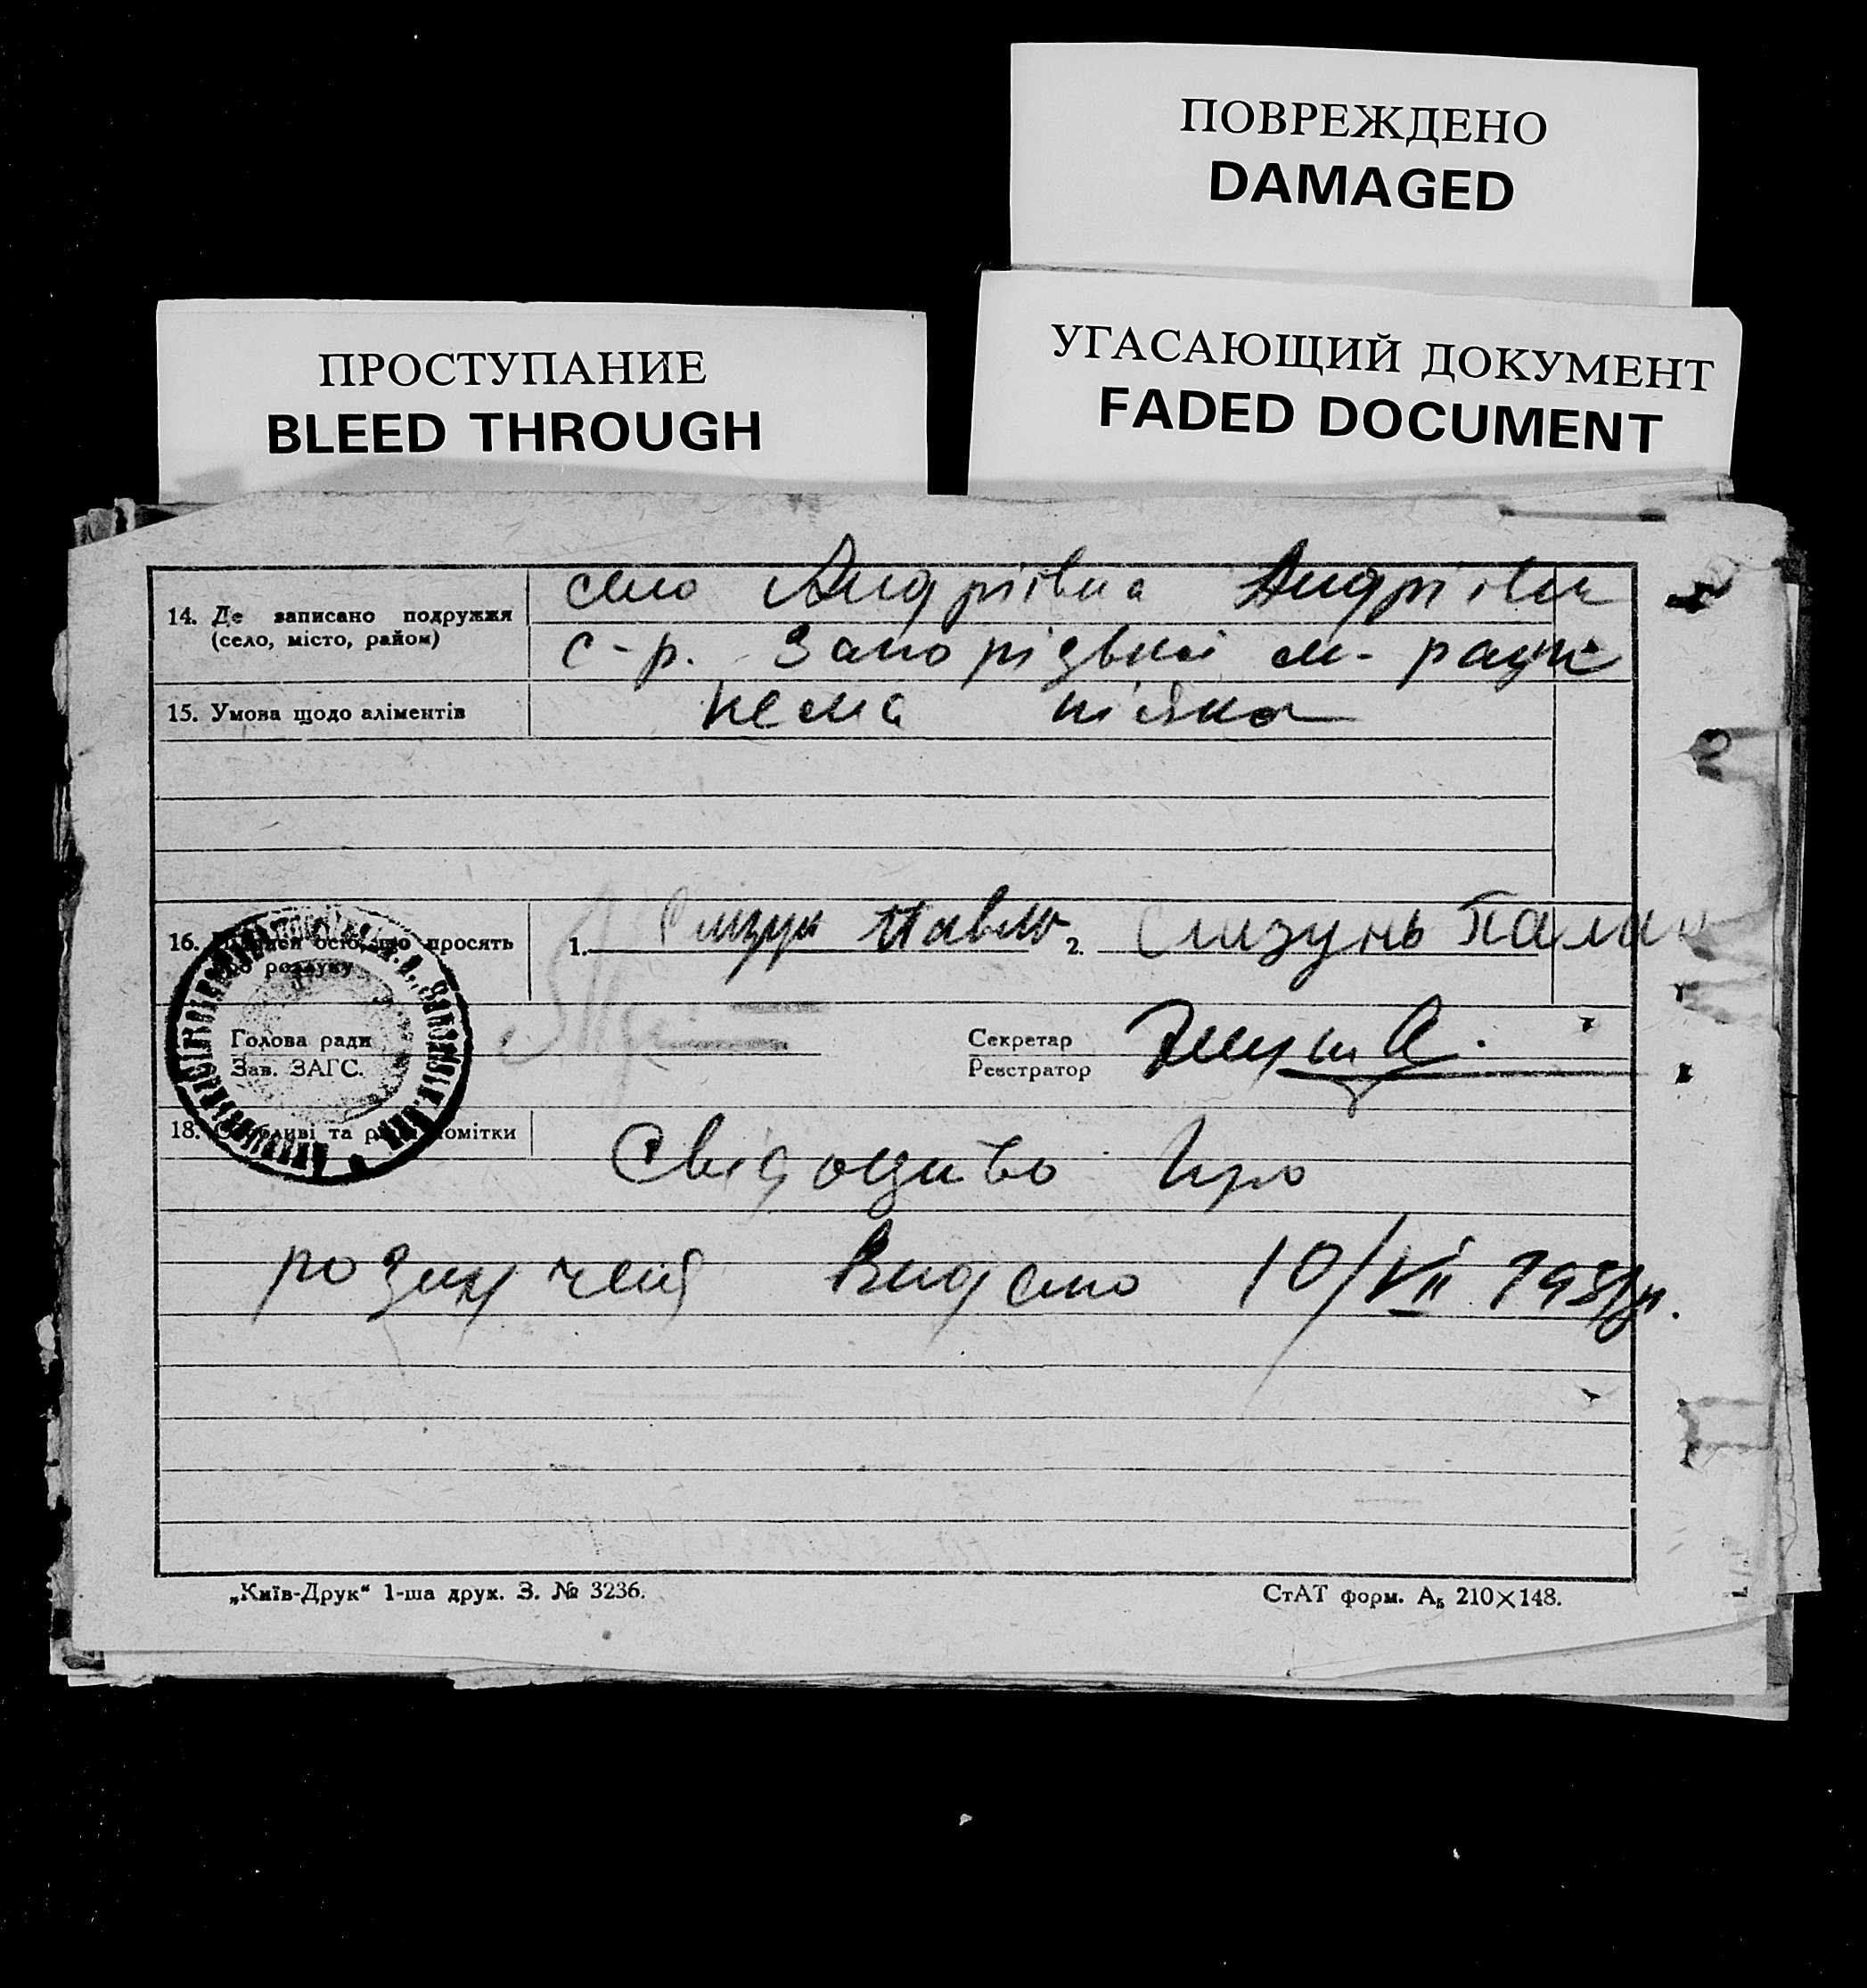 ПОВРЕЖДЕНО
DAMAGED
ПРОСТУПАНИЕ
BLEED THROUGH
УГАСАЮЩИЙ ДОКУМЕНТ
FADED DOCUMENT
14. Де записано подружжя
(село, місто, район)
село Андріівка Андріівск
с-р. Запорізької м- ради
15. Умова щодо аліментів
нема ніяка
16. осіб, що просять
про розлуку
1. Слизун Павло 2. Слизунь Палаж
Голова ради
Зав. ЗАГС.
Секретар
Реєстратор
18. та помітки
Свідоцтво про
розлученя Видано 10/VII 193
„Київ-Друк“ 1-ша друк. З. № 3236.
СтАТ форм. А₅ 210×148.